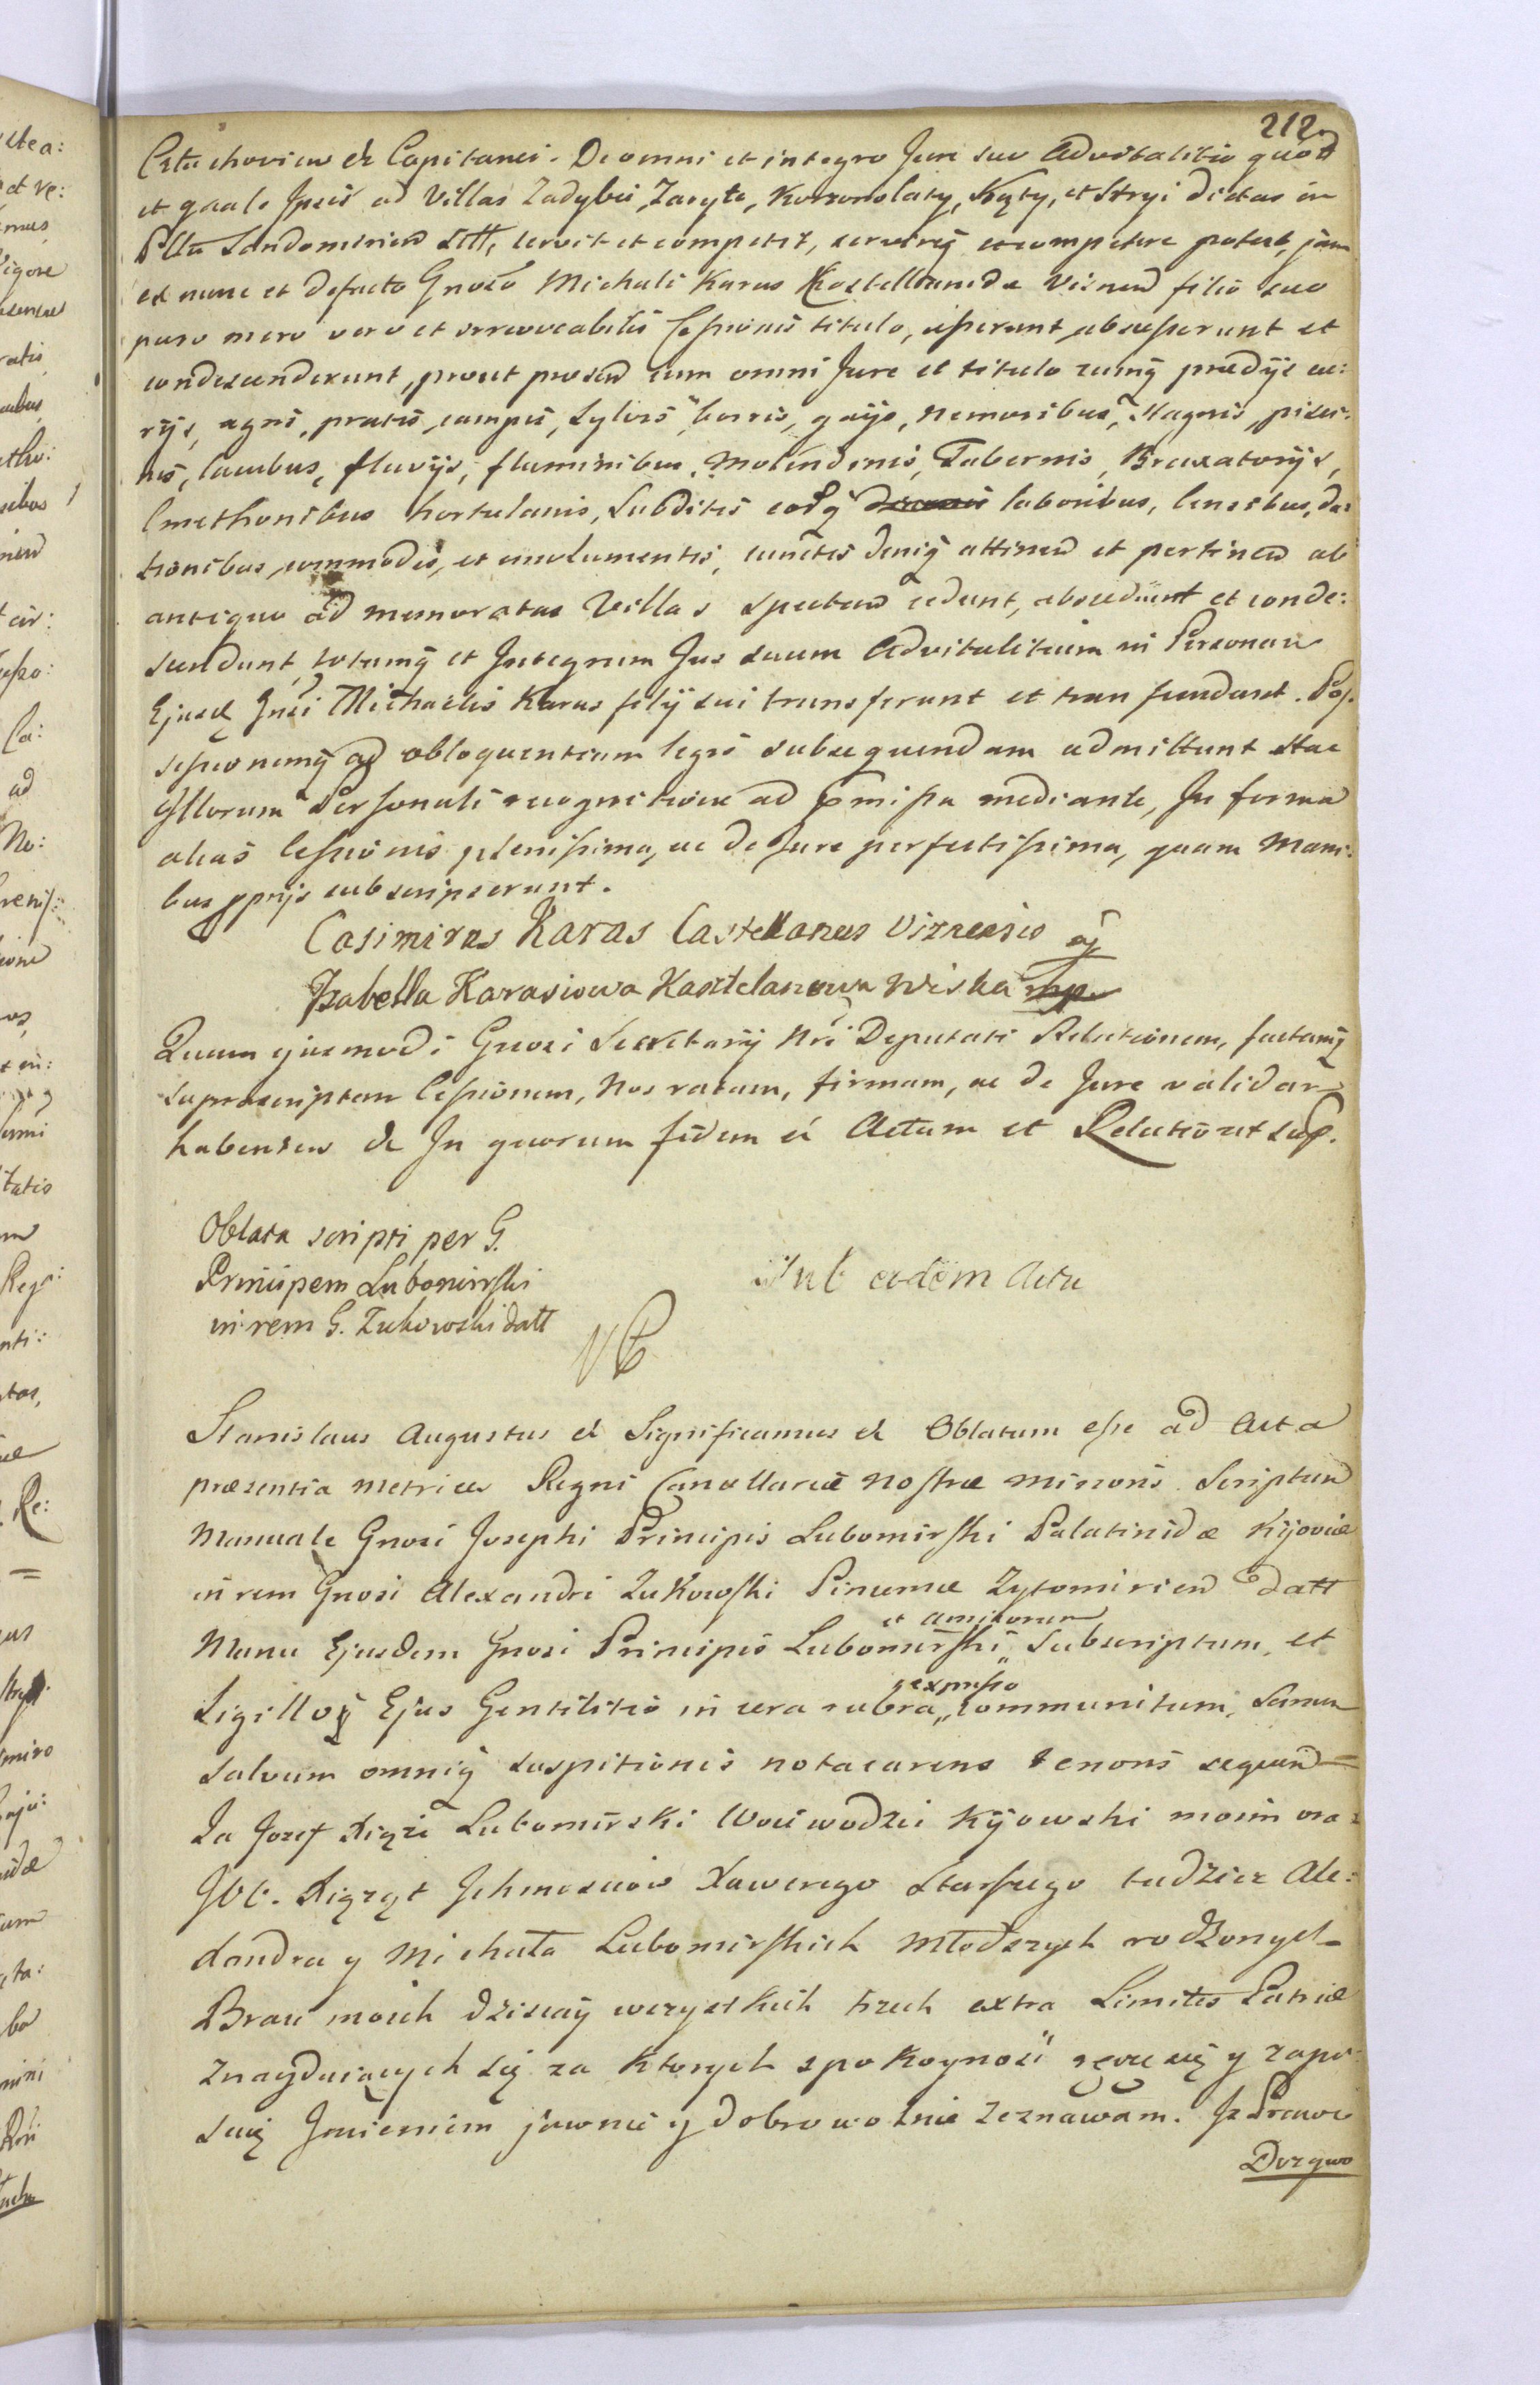 212
et Capitanei. De omni et integro Jure suo Advitalitio quod
et quale Ipsis ad Villas Zadybie, Zaryte, Korzonslaty, Kąty, et Stryi dictas in
Pttu Sandomirien sitt, servit et competit, servireq et competere poterit, jam
ex nunc et defacto Gnoso Michaeli Karas Kastellanidæ Visnen filio suo
puro mero vero et irrevocabilis Cessionis titulo, cesserunt abscesserunt et
condescenderunt, prout præsen cum omni Jure et titulo cumq prædijs cu:
rijs, agris, pratis, campis, sylvis, borris, gaijs, nemoribus, stagnis, pisci:
nis, lacubus, fluvijs, fluminibus, Molendinis, Tabernis, Braxatorijs,
Cmethonibus hortulanis, Subditis eorq laboribus, Censibus, da:
tionibus, commodis, et emolumentis, cunctis deniq attinen et pertinen ab
antiquo ad memoratas Villas spectan cedunt, abscedunt et conde:
scendunt, totumq et Integrum Jus suum Advitalitium in Personam
Ejusd Gnosi Michaelis Karas filij sui transferunt et transfundunt. Pos:
sessionemq ad obloquentiam legis subsequendam admittunt Hac
Illorum Personali recognitione ad præmissa mediante, In forma
alias Cessionis plenissima, ac de Jure perfectissima, quam Mani:
bus pprijs subscripserunt.
Casimirus Karas Castellanus Viznensis
Izabella Karasiowa Kasztelanowa Wiska mp.
Quam ejusmodi Gnosi Secretarij Nri Deputati Relationem, factamq
suprascriptam Cessionem, Nos ratam, firmam, ac de Jure validam
habentes &c In quorum fidem &c Actum et Relatio ut sup.
Oblata scripti per G.
Principem Lubomirski
in rem G. Zukowski datt
Sub eadem Actu
Stanislaus Augustus &c Significamus &c Oblatum esse ad Acta
præsentia metrices Regni Cancellariæ Nostræ minoris Scriptum
Manuale Gnosi Josephi Principis Lubomirski Palatinidæ Kijoviæ
in rem Gnosi Alexandri Zukowski Pincernæ Zytomirien datt
et amicorum
Manu Ejusdem Gnosi Principis Lubomirski " Subscriptum, et
expresso
Sigilloq Ejus Gentilitio in cera rubra " Communitum, Sanum
salvum omniq suspitionis nota carens tenoris sequen =
Ja Jozef Xiąże Lubomirski Woiewodzic Kijowski moim oraz
JOO. Xiążąt Jchmosciow Xawerego Starszego tudziez Ale:
xandra y Michała Lubomirskich Młodszych rodzonych
Braci moich dzisiay wszystkich trzech extra Limites Patriæ
Znayduiących się za ktorych spokoynosc ręczę y zapi
suię Jmieniem jawnie y dobrowolnie Zeznawam. Jz Prawo